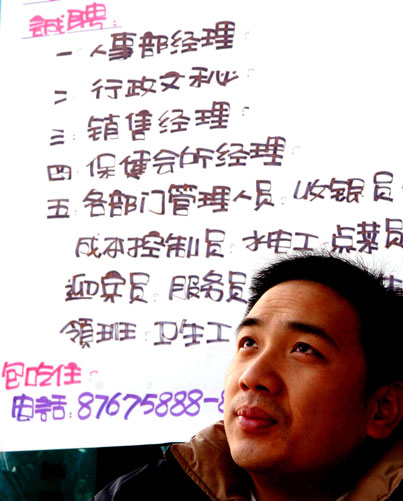 誠聘:
一 人事部经理.
二 行政文秘.
三 销售经理.
四 保健会所经理
五 各部门管理人员. 收银员.
成本控制员. 水电工. 点菜员
迎宾员. 服务员
領班. 卫生工
包吃住.
电話:87675888-8